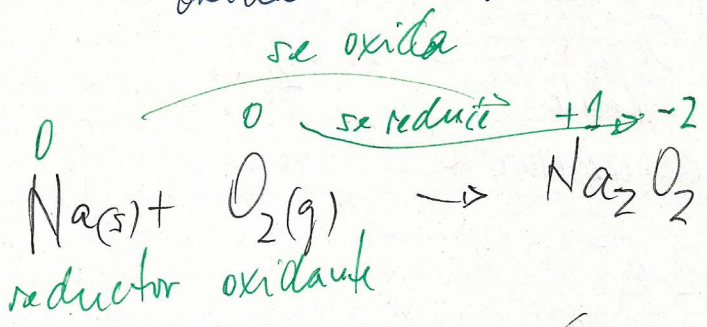 se oxida
0 0 se reduce +1 -2
Na(s) + O2(g) → Na2O2
reductor oxidante